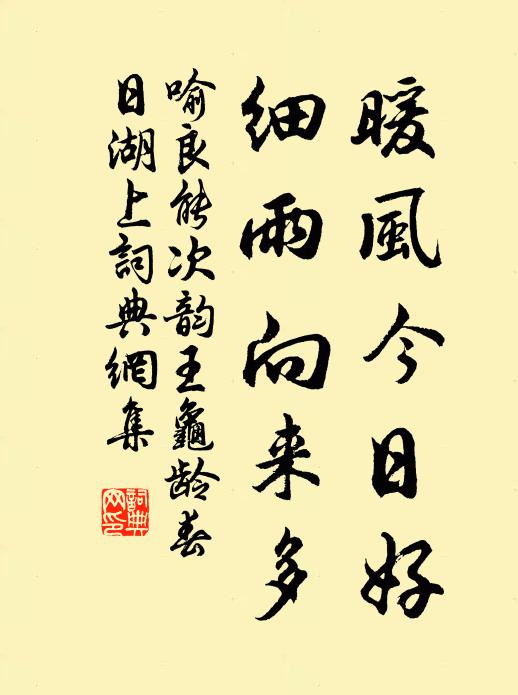 暖風今日好
細雨向来多
喻良能次韵王龜龄春
日湖上詞典網集
詞典网印